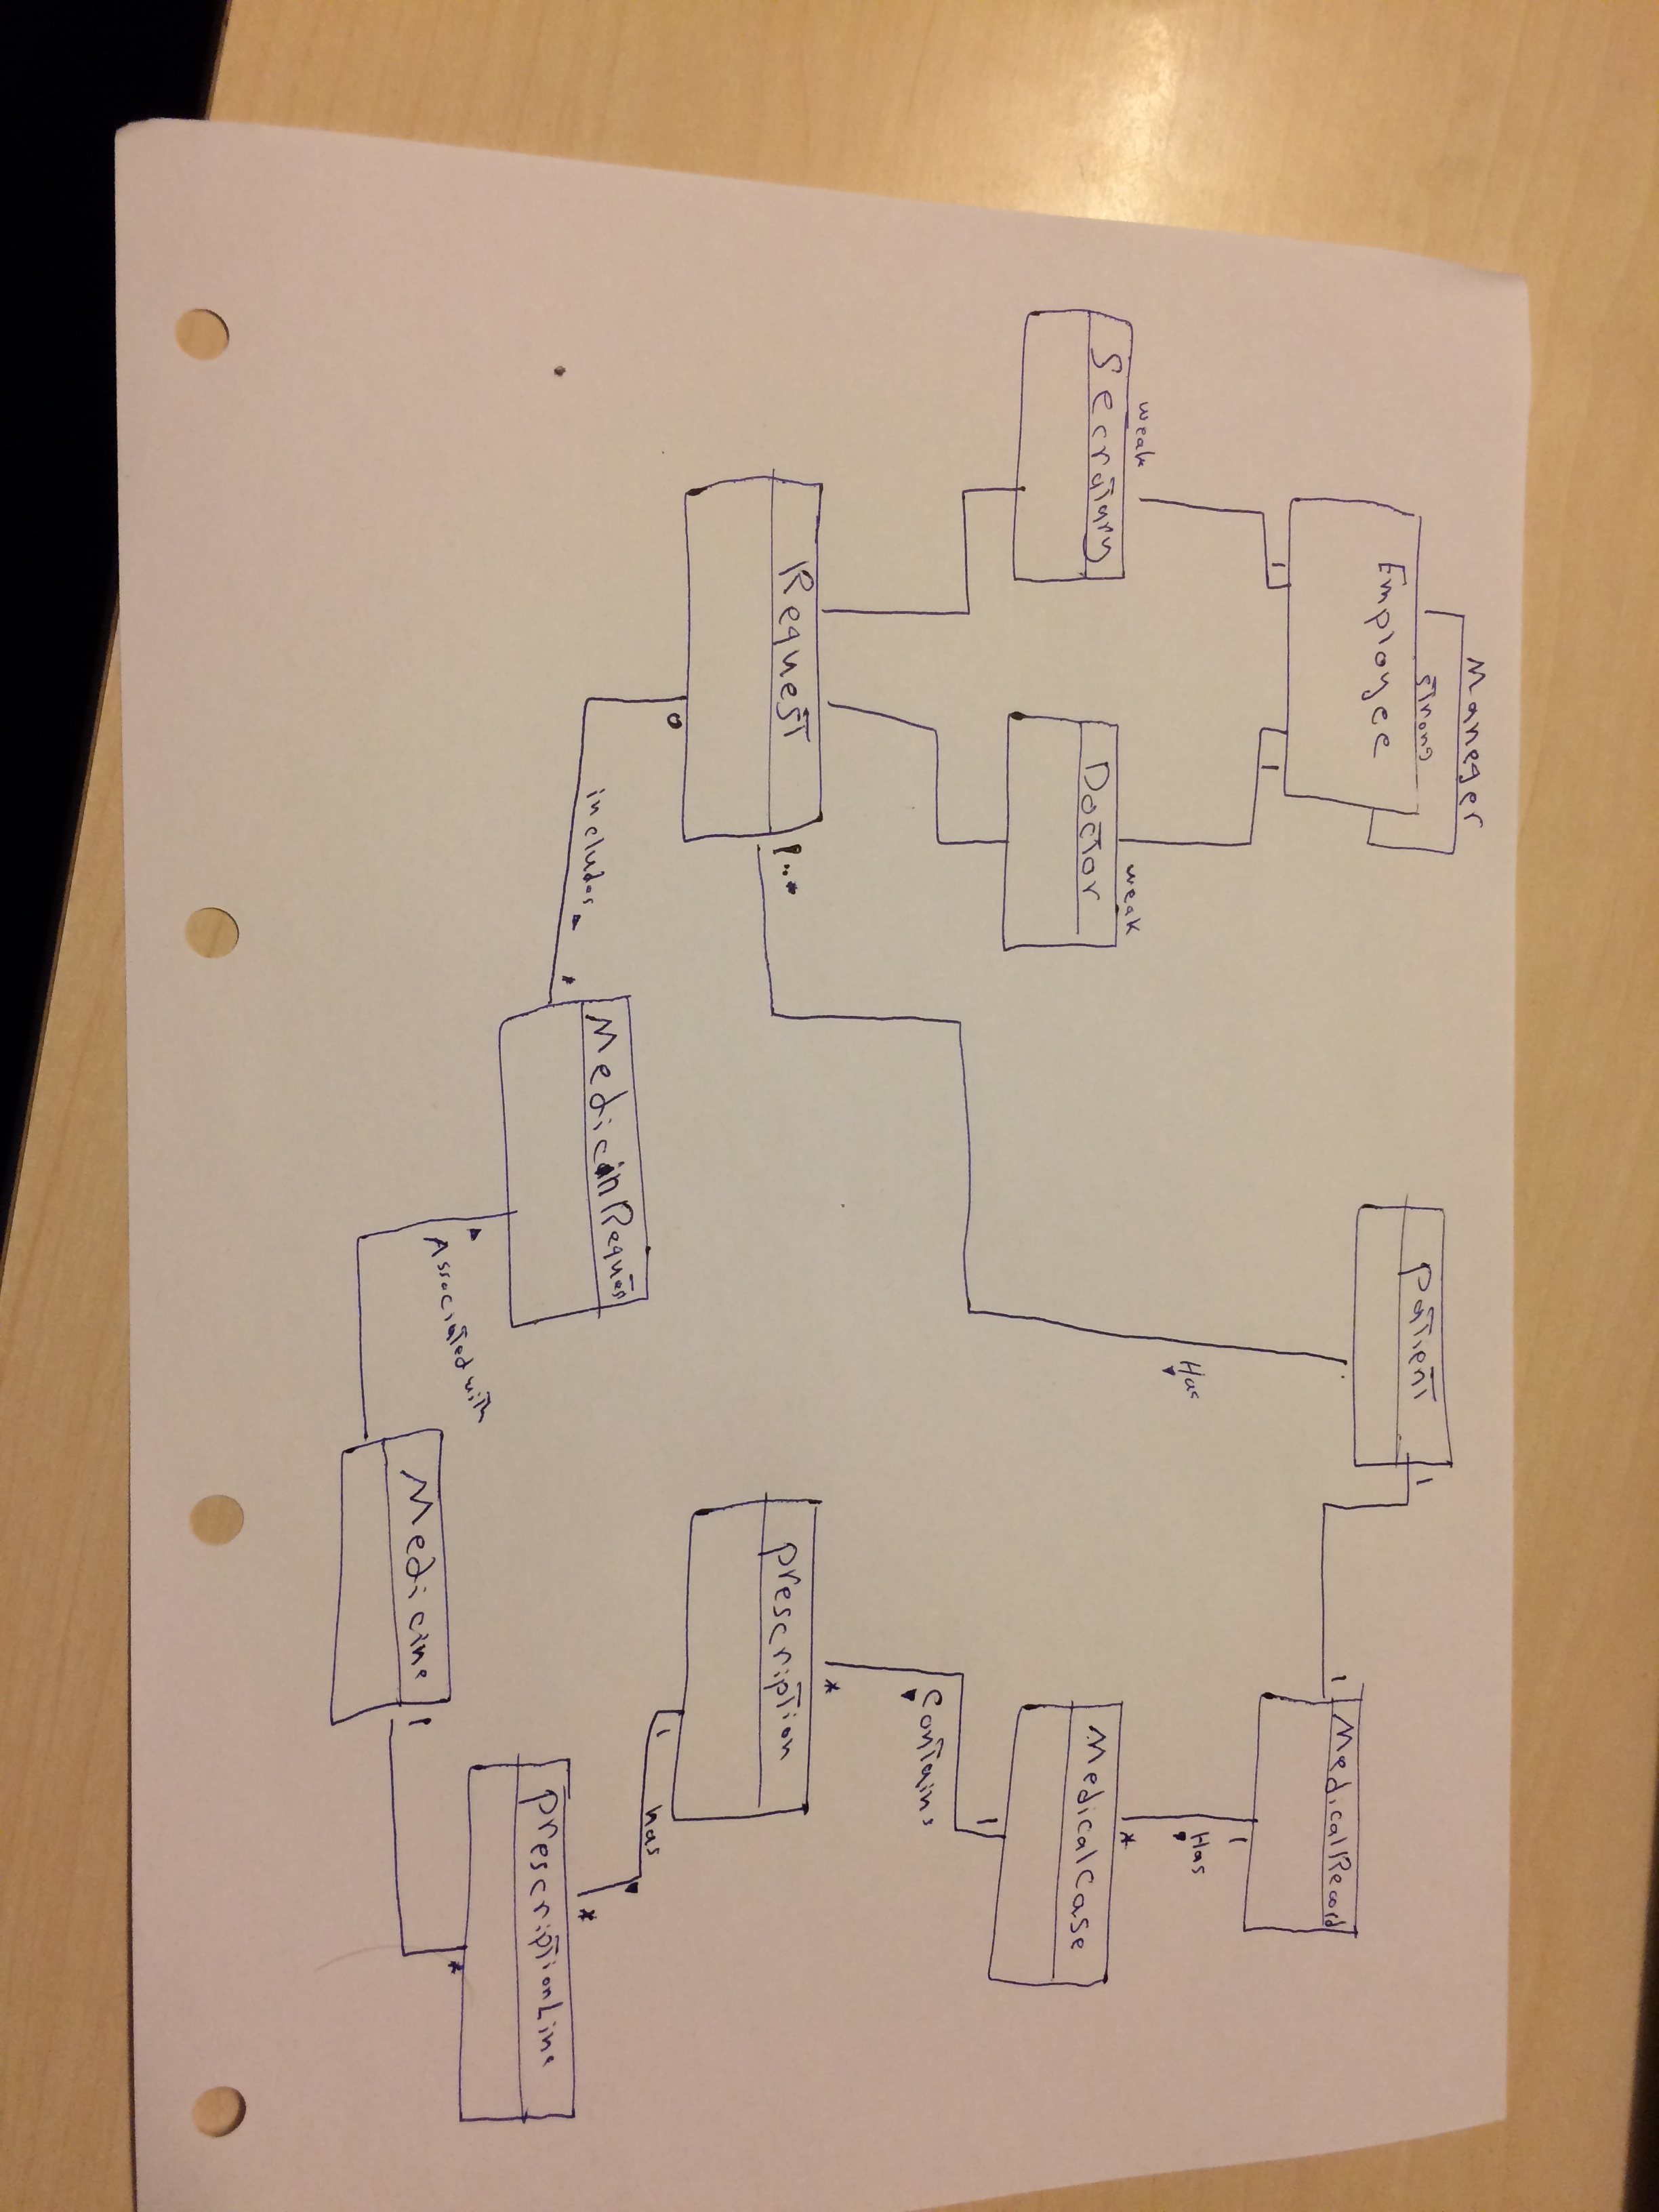 Maneger
strong
Employee
1
1
weak
Secratary
weak
Doctor
Request
1..*
0
includes
*
MedicinReques
Associated with
Medicine
1
Patient
1
Has
1
MedicalRecord
1
Has
*
MedicalCase
1
Contains
*
prescription
1
has
*
prescriptionLine
*